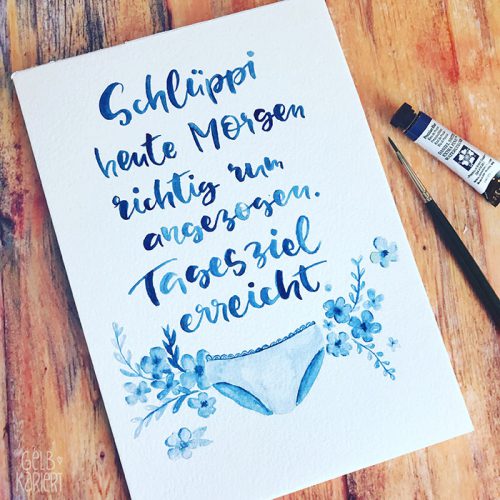 Schlüppi
heute Morgen
richtig rum
angezogen.
Tagesziel
erreicht.
GELB
KARIERT